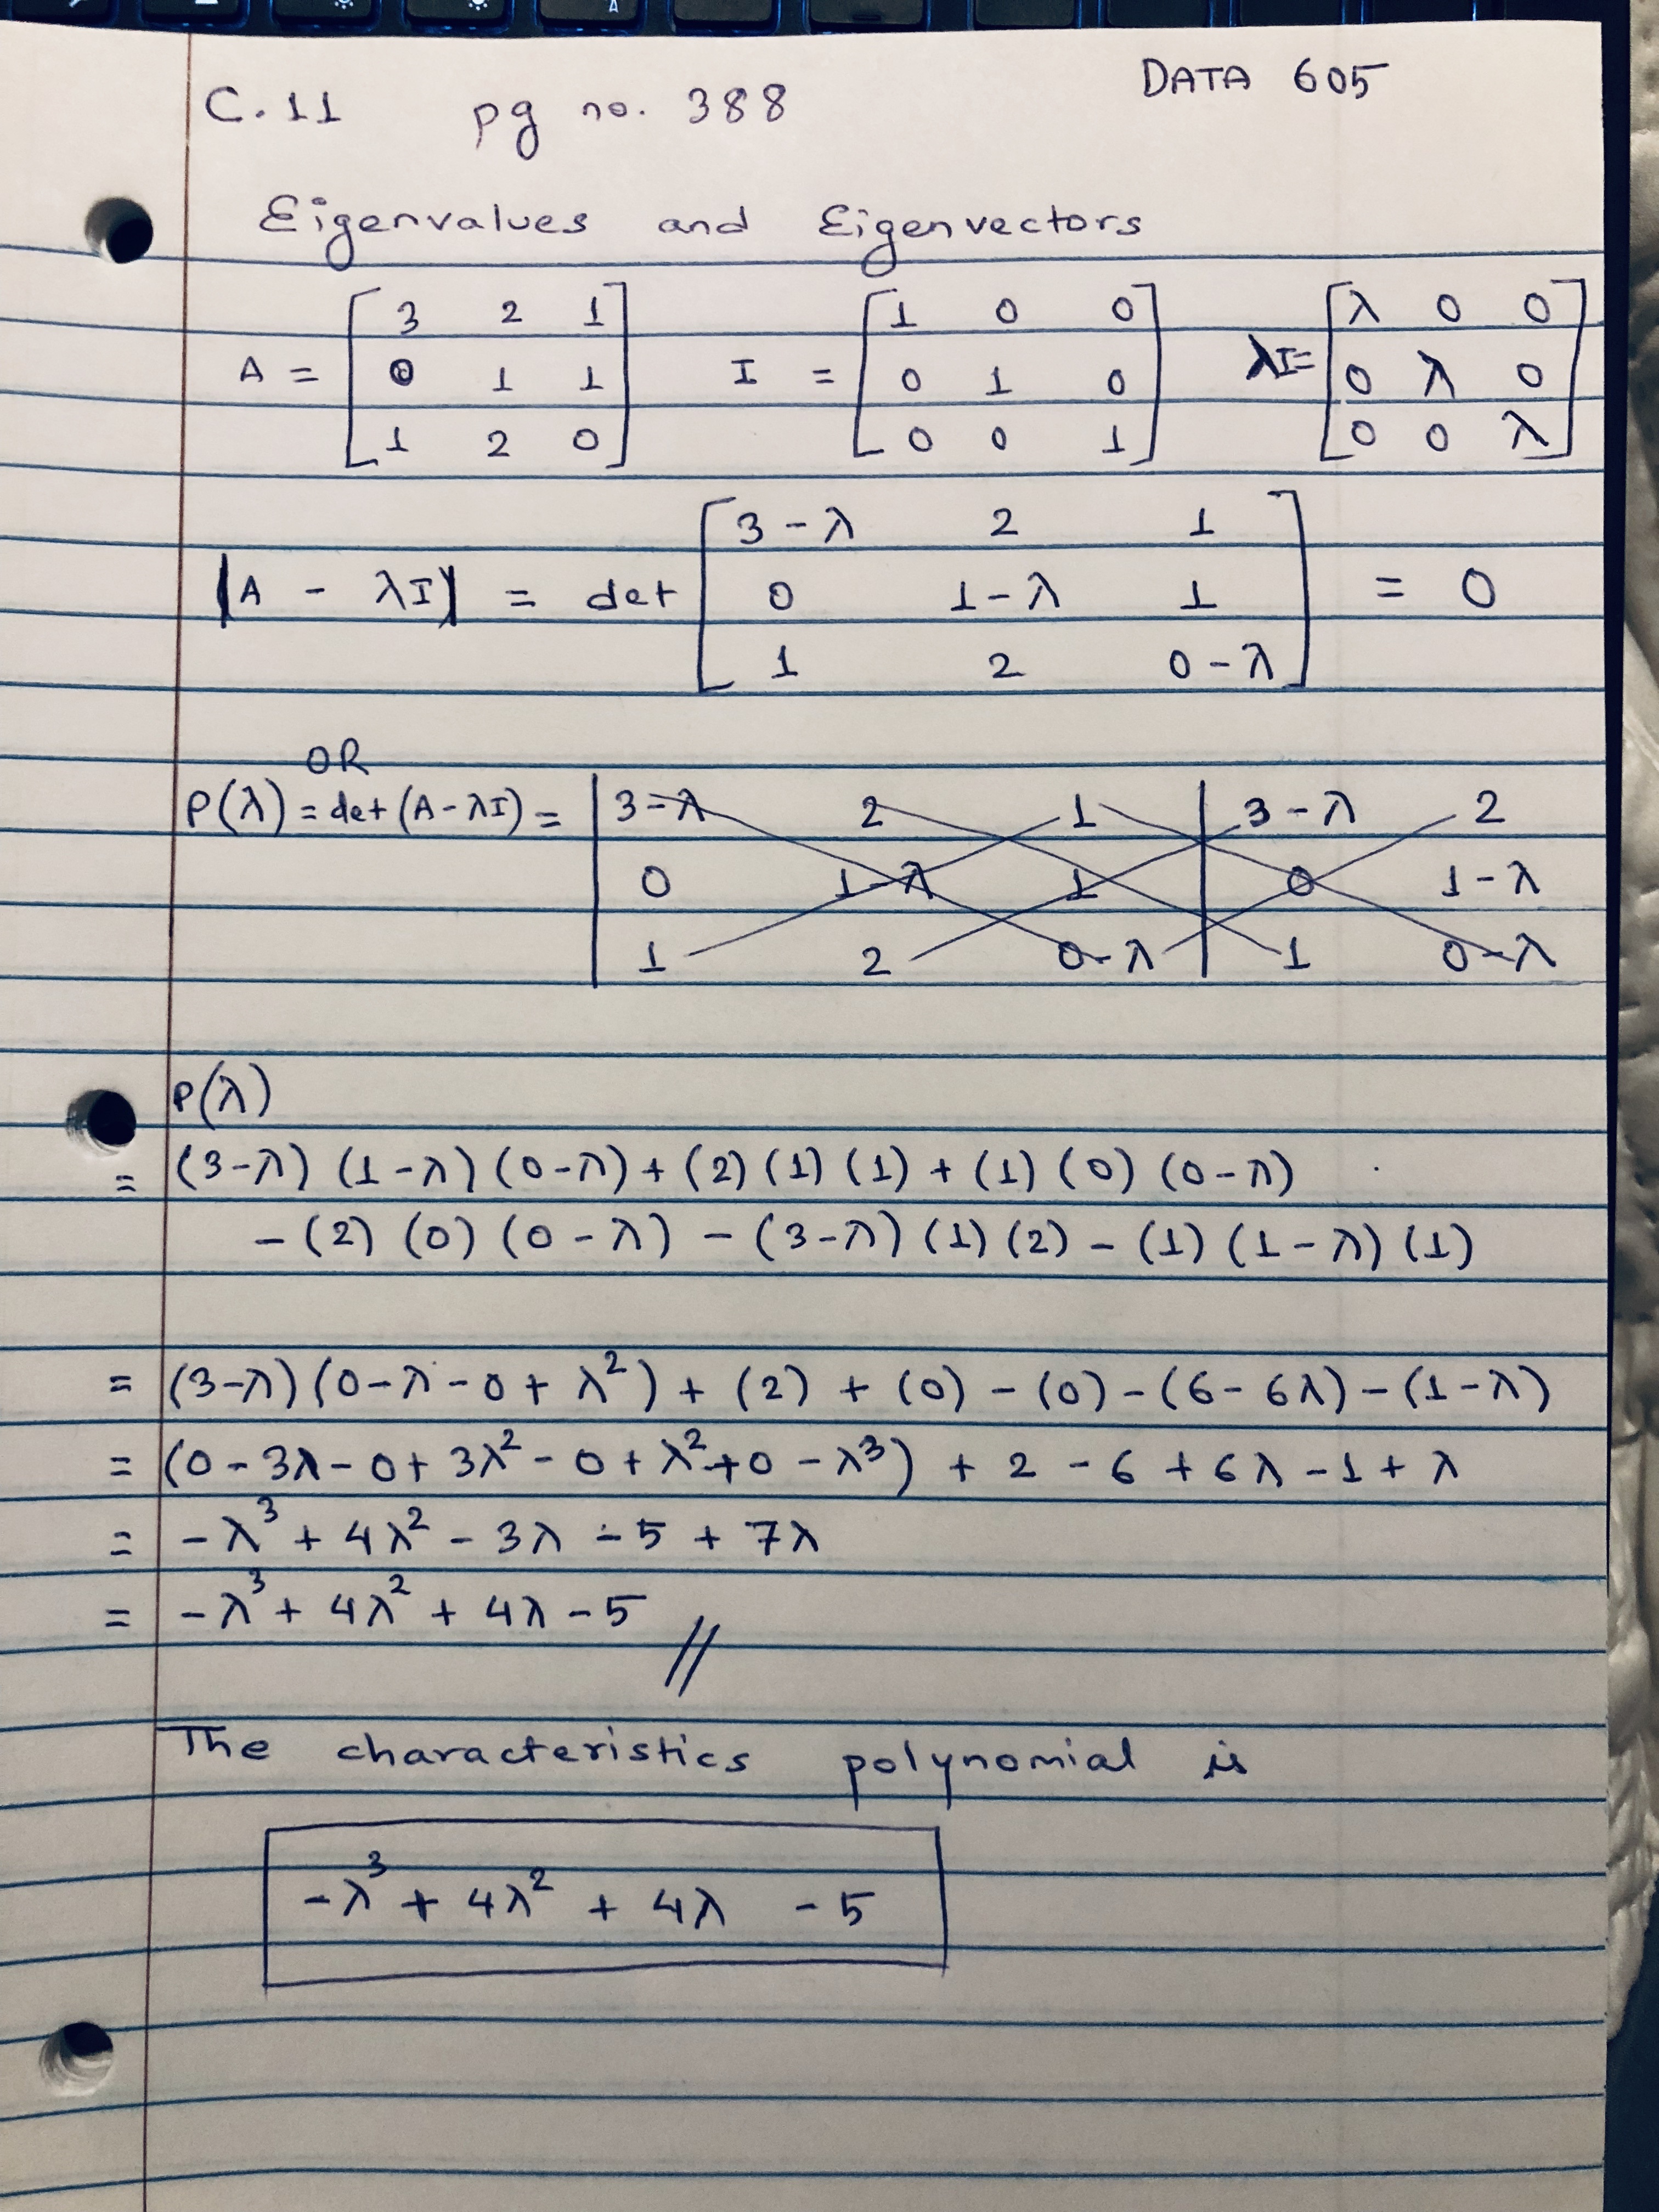 DATA 605
C.11 pg no. 388
Eigenvalues and Eigenvectors
A = [3 2 1] I = [1 0 0] λI = [λ 0 0]
[0 1 1] [0 1 0] [0 λ 0]
[1 2 0] [0 0 1] [0 0 λ]
|A - λI| = det [3-λ 2 1] = 0
[0 1-λ 1]
[1 2 0-λ]
OR
P(λ) = det(A-λI) = |3-λ 2 1 | 3-λ 2
|0 1-λ 1 | 0 1-λ
|1 2 0-λ | 1 0-λ
P(λ)
= (3-λ) (1-λ) (0-λ) + (2) (1) (1) + (1) (0) (0-λ)
- (2) (0) (0-λ) - (3-λ) (1) (2) - (1) (1-λ) (1)
= (3-λ) (0-λ-0+λ²) + (2) + (0) - (0) - (6-6λ) - (1-λ)
= (0-3λ-0+3λ²-0+λ²+0-λ³) + 2 - 6 + 6λ - 1 + λ
= -λ³ + 4λ² - 3λ - 5 + 7λ
= -λ³ + 4λ² + 4λ - 5 //
The characteristics polynomial is
-λ³ + 4λ² + 4λ - 5